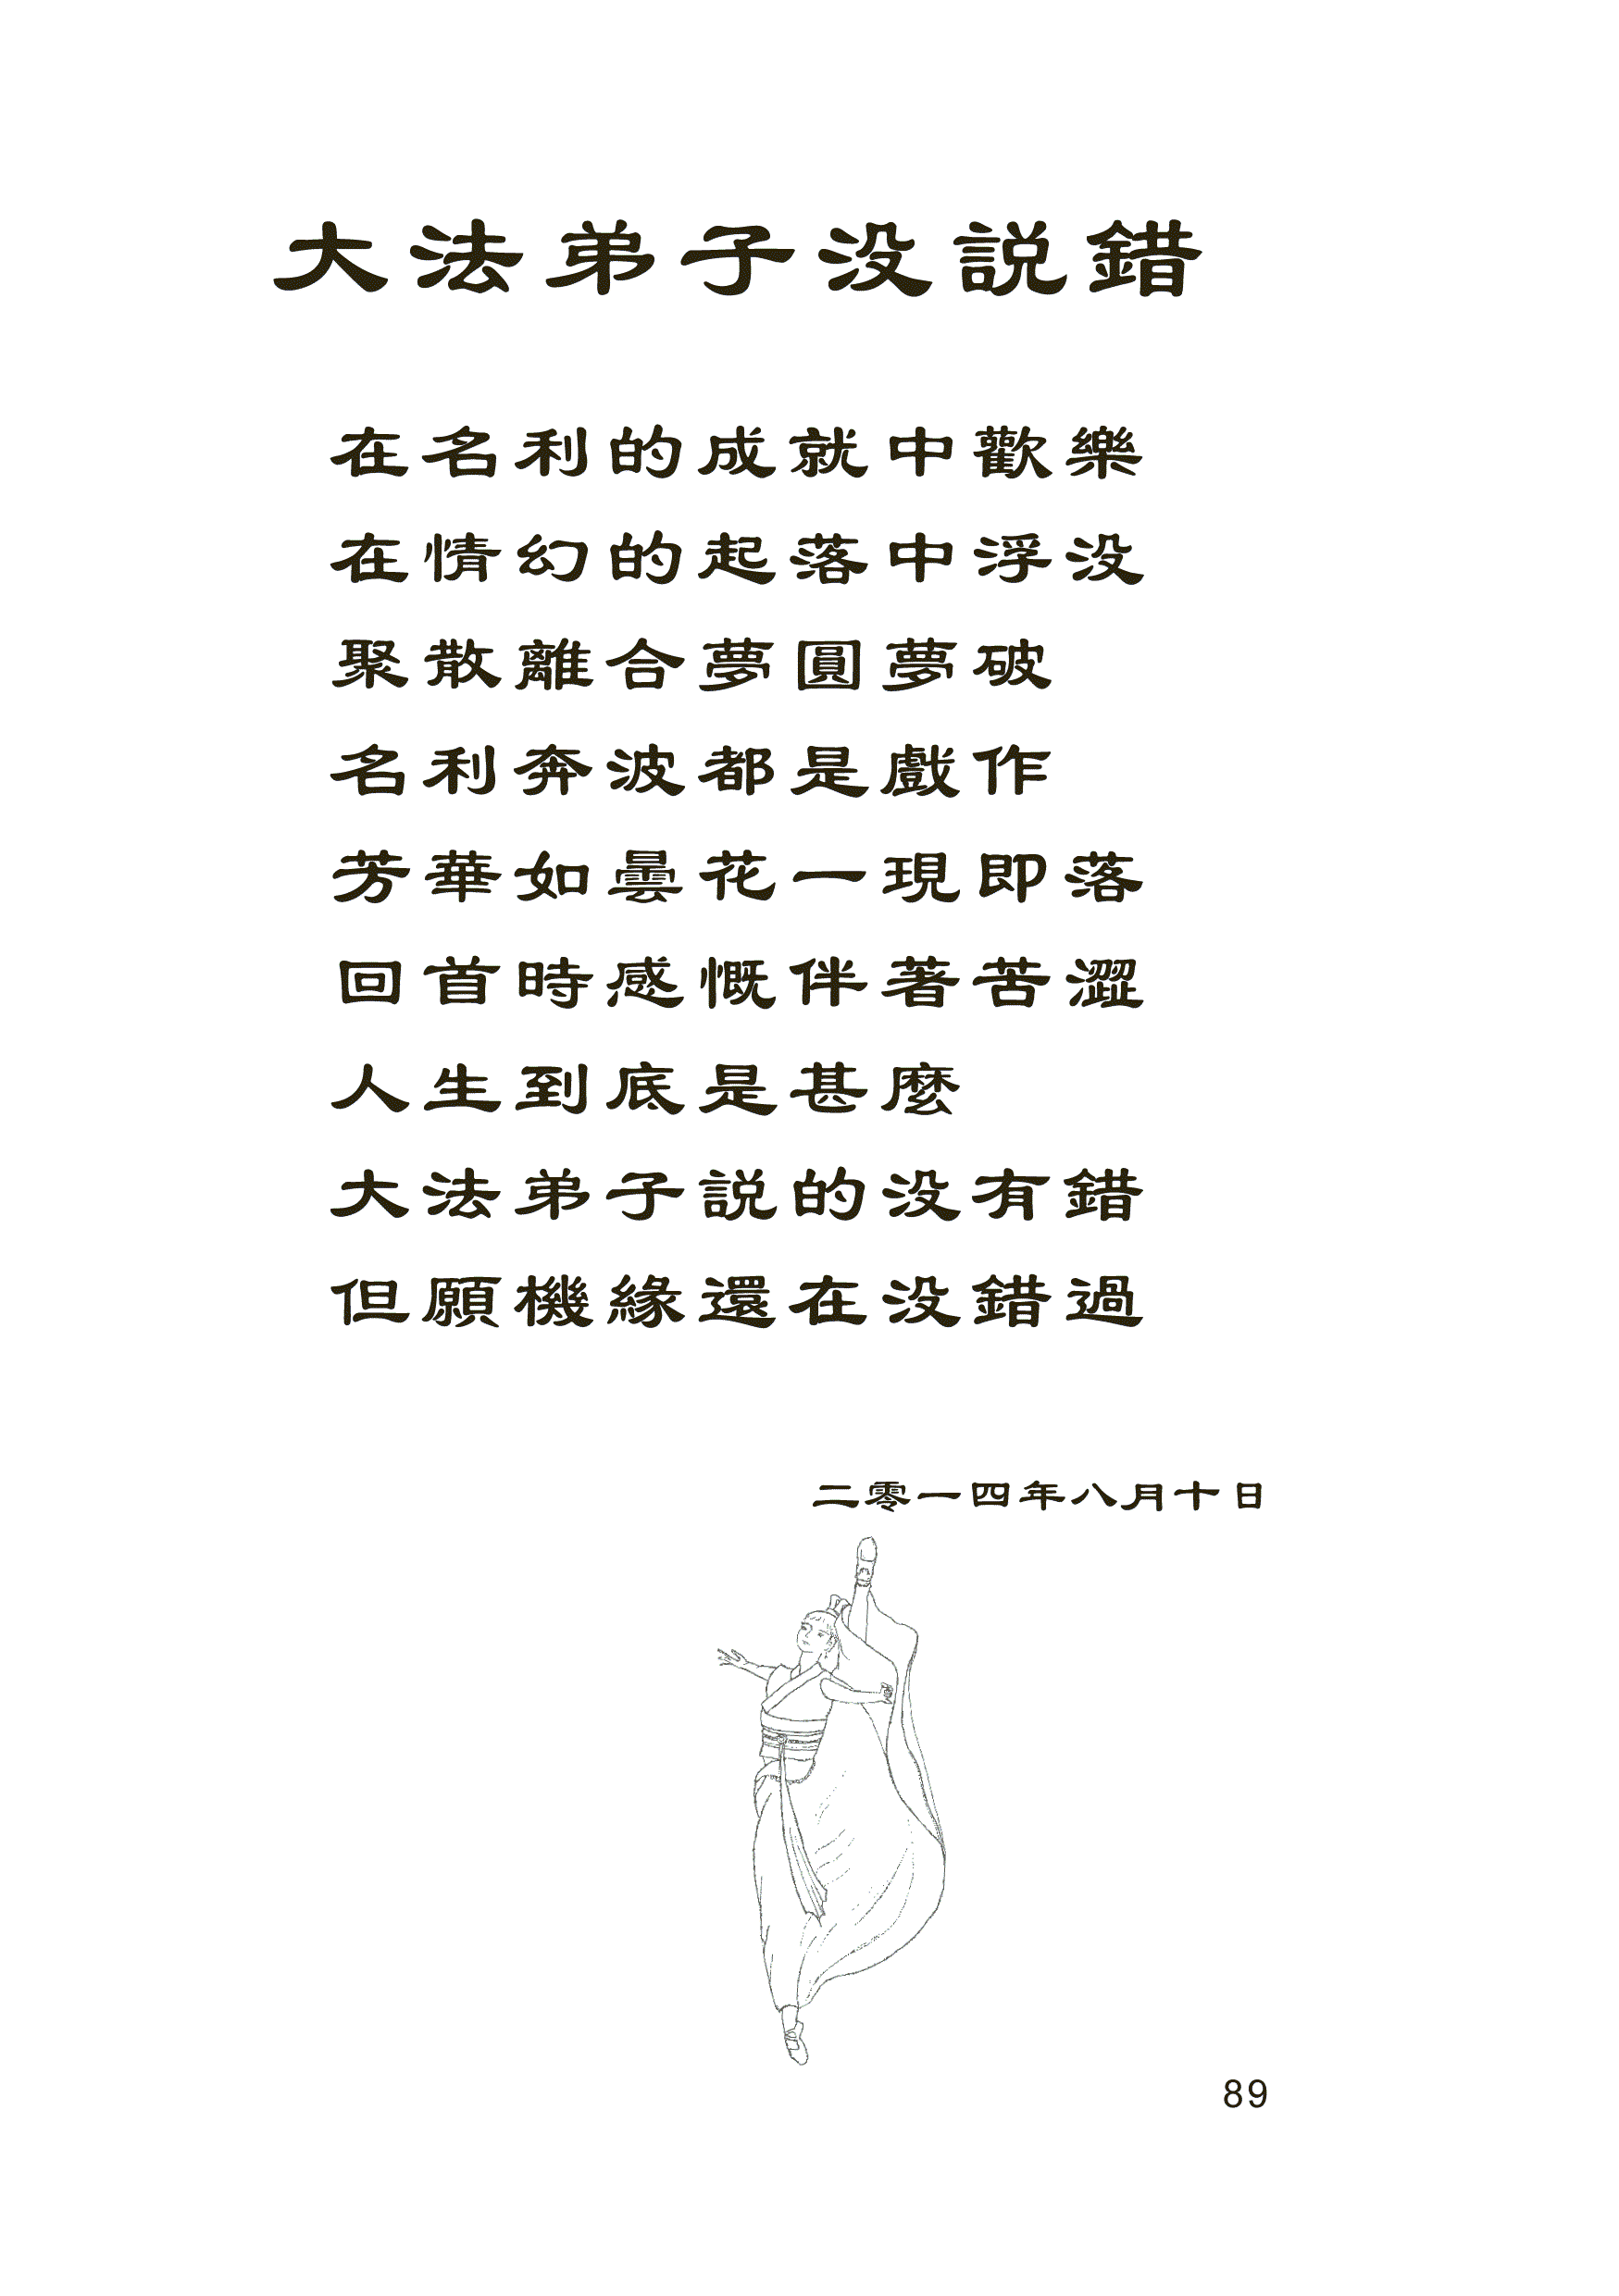 大法弟子没説錯
在名利的成就中歡樂
在情幻的起落中浮没
聚散離合夢圓夢破
名利奔波都是戲作
芳華如曇花一現即落
回首時感慨伴著苦澀
人生到底是甚麼
大法弟子説的没有錯
但願機緣還在没錯過
二零一四年八月十日
89